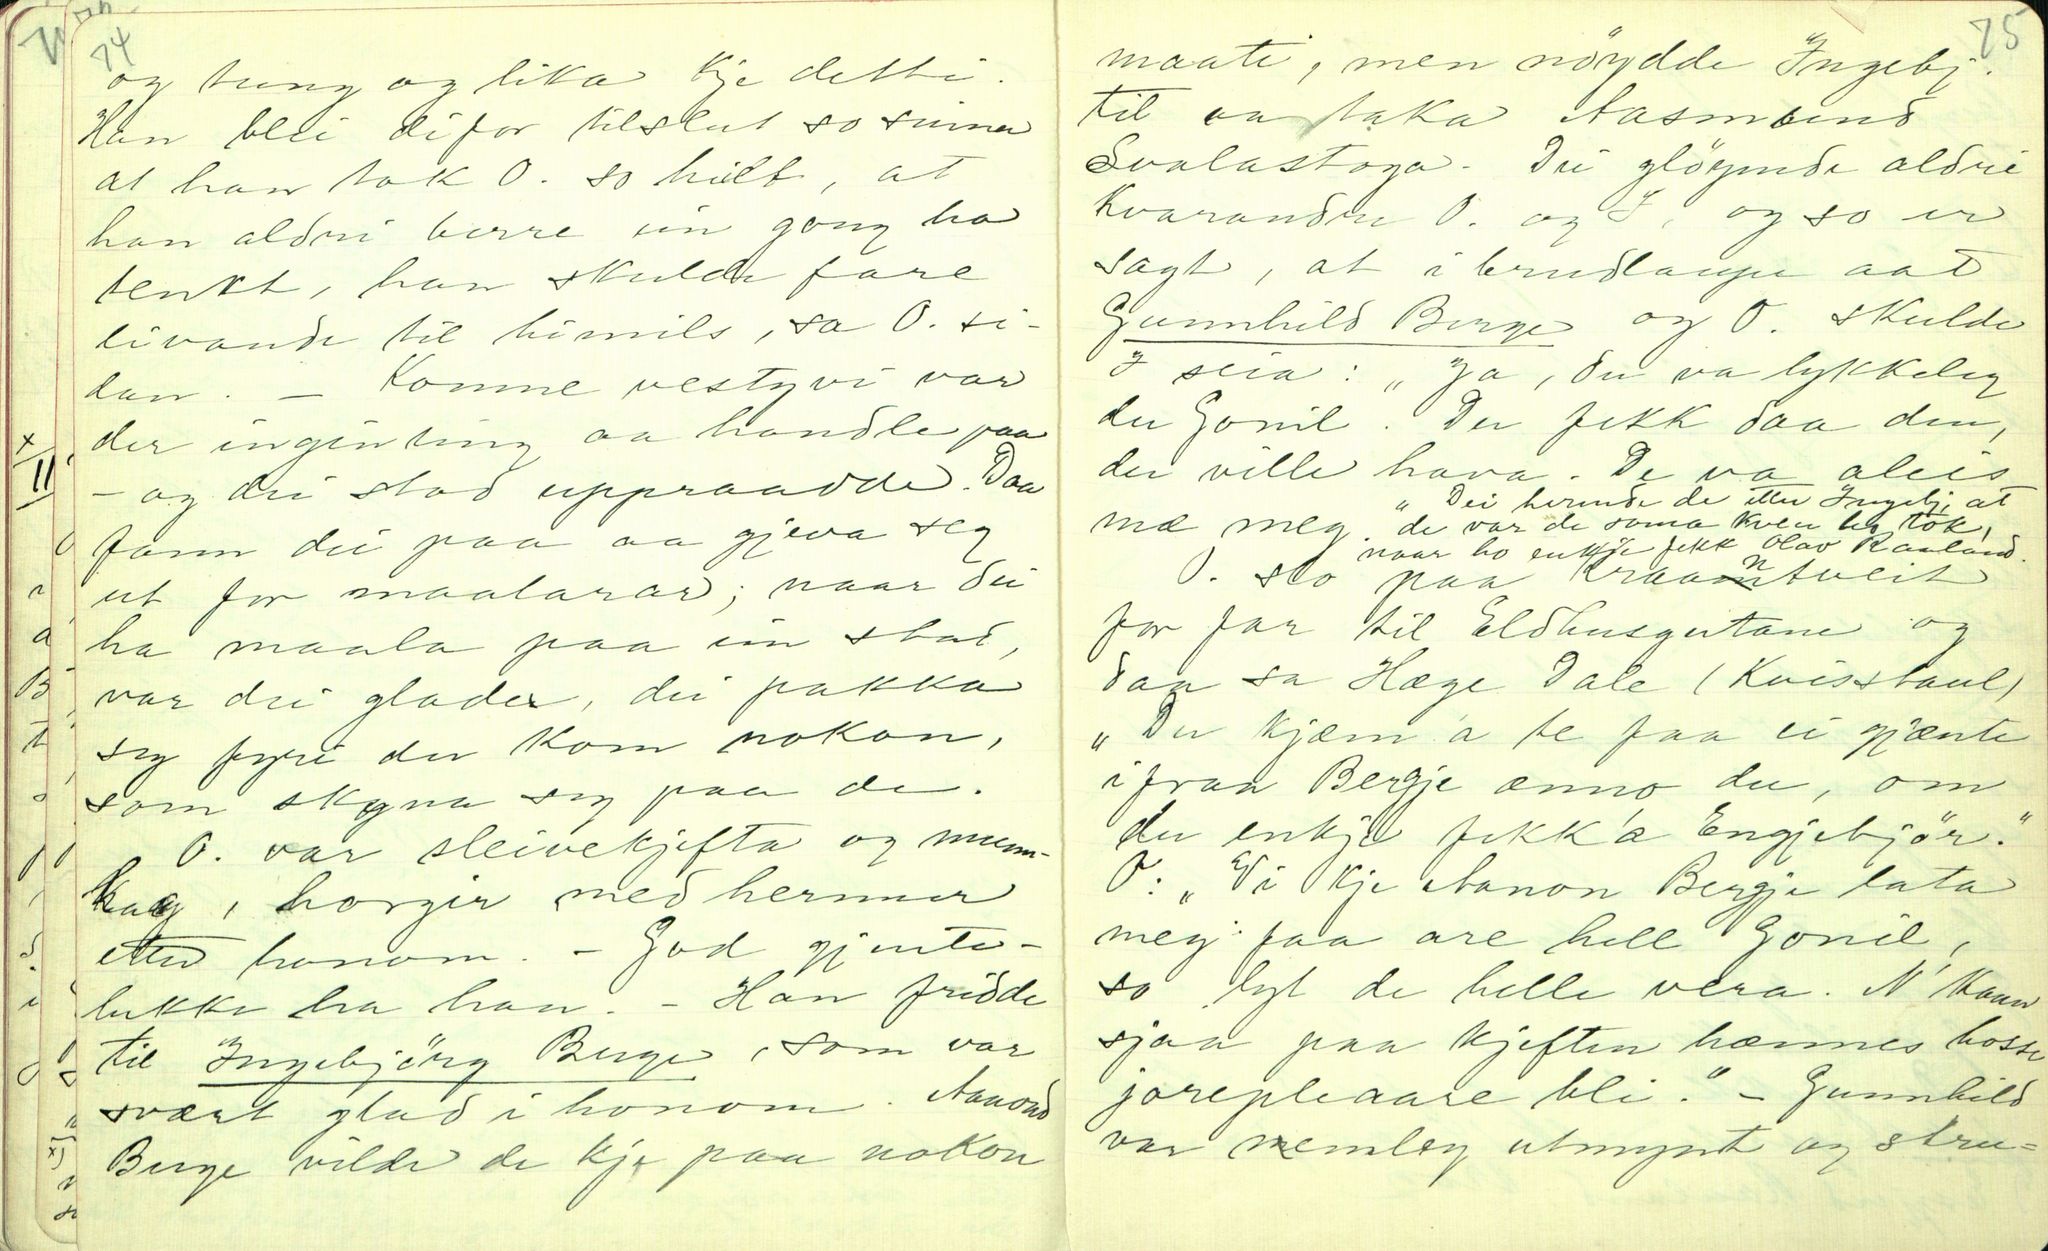 74
og tung og lika kje detti.
Han blei difor tilslut so sinna
at han tok O. so hilt, at
han aldri berre ein gong ha
tenkt, han skulde fare
livande til himils, sa O. si-
dan. — Komne vestyvi var
der ingenting aa handle paa
— og dei stod uppraadde. Daa
fann dei paa aa gjeva seg
ut for maalarar; naar dei
ha maala paa ein stad,
var dei glade, dei pakka
seg fyri der kom nokon,
som skyna seg paa de.
O. var sleivekjefta og munn-
kaa, horgir med hermer
etter honom. — God gjente-
lukke ha han. — Han fridde
til Ingebjörg Berge, som var
svært glad i honom. Aanond
Berge vilde de kje paa nokon
75
maati, men nöydde Ingebj.
til aa taka Aasmund
Svalastoga. Dei glöymde aldri
kvarandre O. og I, og so er
sagt, at i brudlaupe aat
Gunnhild Berge og O. skulde
I seia: „Ja, du va lykkeleg
du Gonil. Du fekk daa den,
du ville hava. De va aleis
mæ meg. „Dei hermde de etter Ingebj. at
de var de sama kven ho tok,
naar ho enkje fekk Olav Rauland.
O. slo paa Kraantveit
for far til Eldhusgutane og
daa sa Hæge Dale (Kvisstaul)
„Du kjæm'a te faa ei gjænte
ifraa Bergje ænno du, om
du enkje fekk'a Engjebjör."
O: „Vi kje Aanon Bergje lata
meg faa are hell Gonil,
so lyt de helle vera. N' kann
sjaa paa kjeften hænnes hosse
joreplaare bli." — Gunnhild
var nemleg utmynt og stru=